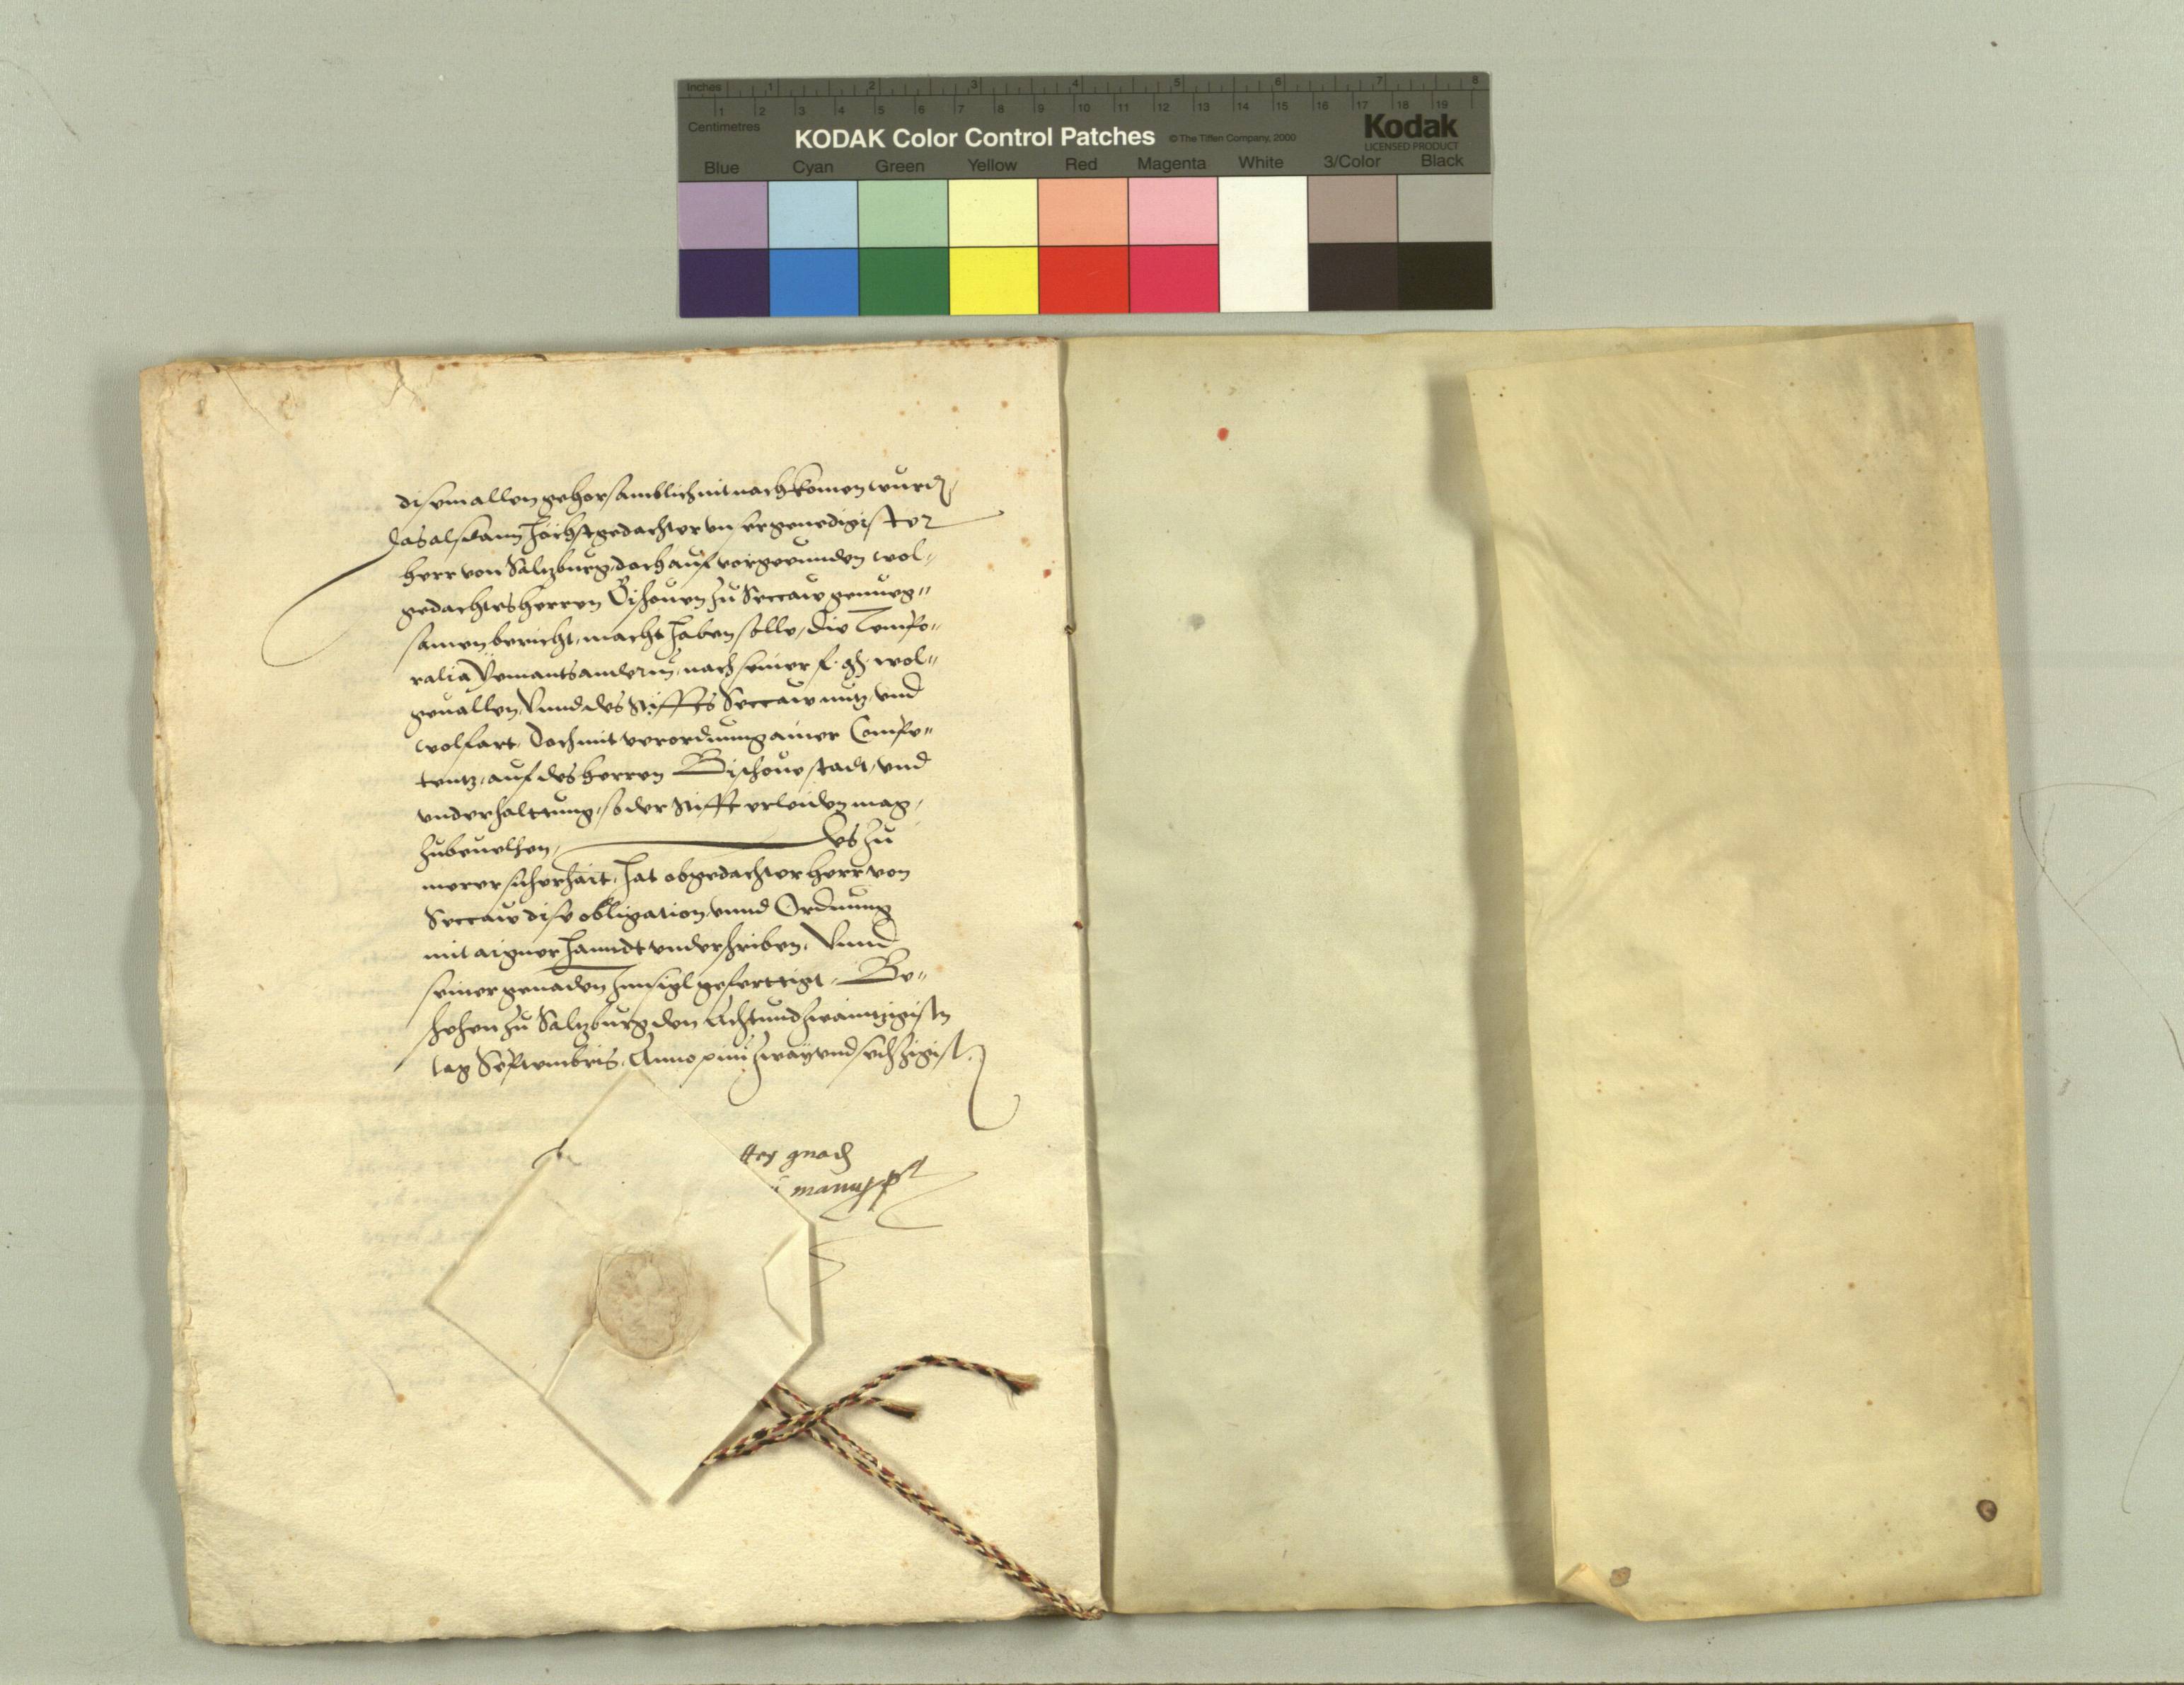 Inches 1 2 3 4 5 6 7 8
1 2 3 4 5 6 7 8 9 10 11 12 13 14 15 16 17 18 19
Centimetres
KODAK Color Control Patches © The Tiffen Company, 2000 Kodak
LICENSED PRODUCT
Blue Cyan Green Yellow Red Magenta White 3/Color Black
disem allen gehorsamblich nit nachkomen wurd,
das alsdann höchstgedachter unser genedigister
herr von Saltzburg, doch auf vorgeenden wol-
gedachts herren Bischouen zu Seccaw genueg-
samen bericht, macht haben solle, die Tempo-
ralia yemants anderm, nach seiner f. g. wol-
geuallen, vnnd des Stiffts Seccaw nutz, vnd
wolfart, doch mit verordnung ainer Compe-
tentz, auf des herren Bischoue stadt, vnd
vnderhalttung, so der Stifft erleiden mag,
zubeuelhen, des zu
merer sicherhait, hat obgedachter herr von
Seccaw dise obligation, vnnd Ordnung
mit aigner hanndt vnderschriben, Vnnd
seiner genaden Innsigl gefertigt, Be-
schehen zu Saltzburg den Achtundzwaintzigistn
tag Septembris, Anno  im zway vnd sechzigist.
gnad
manu ppa